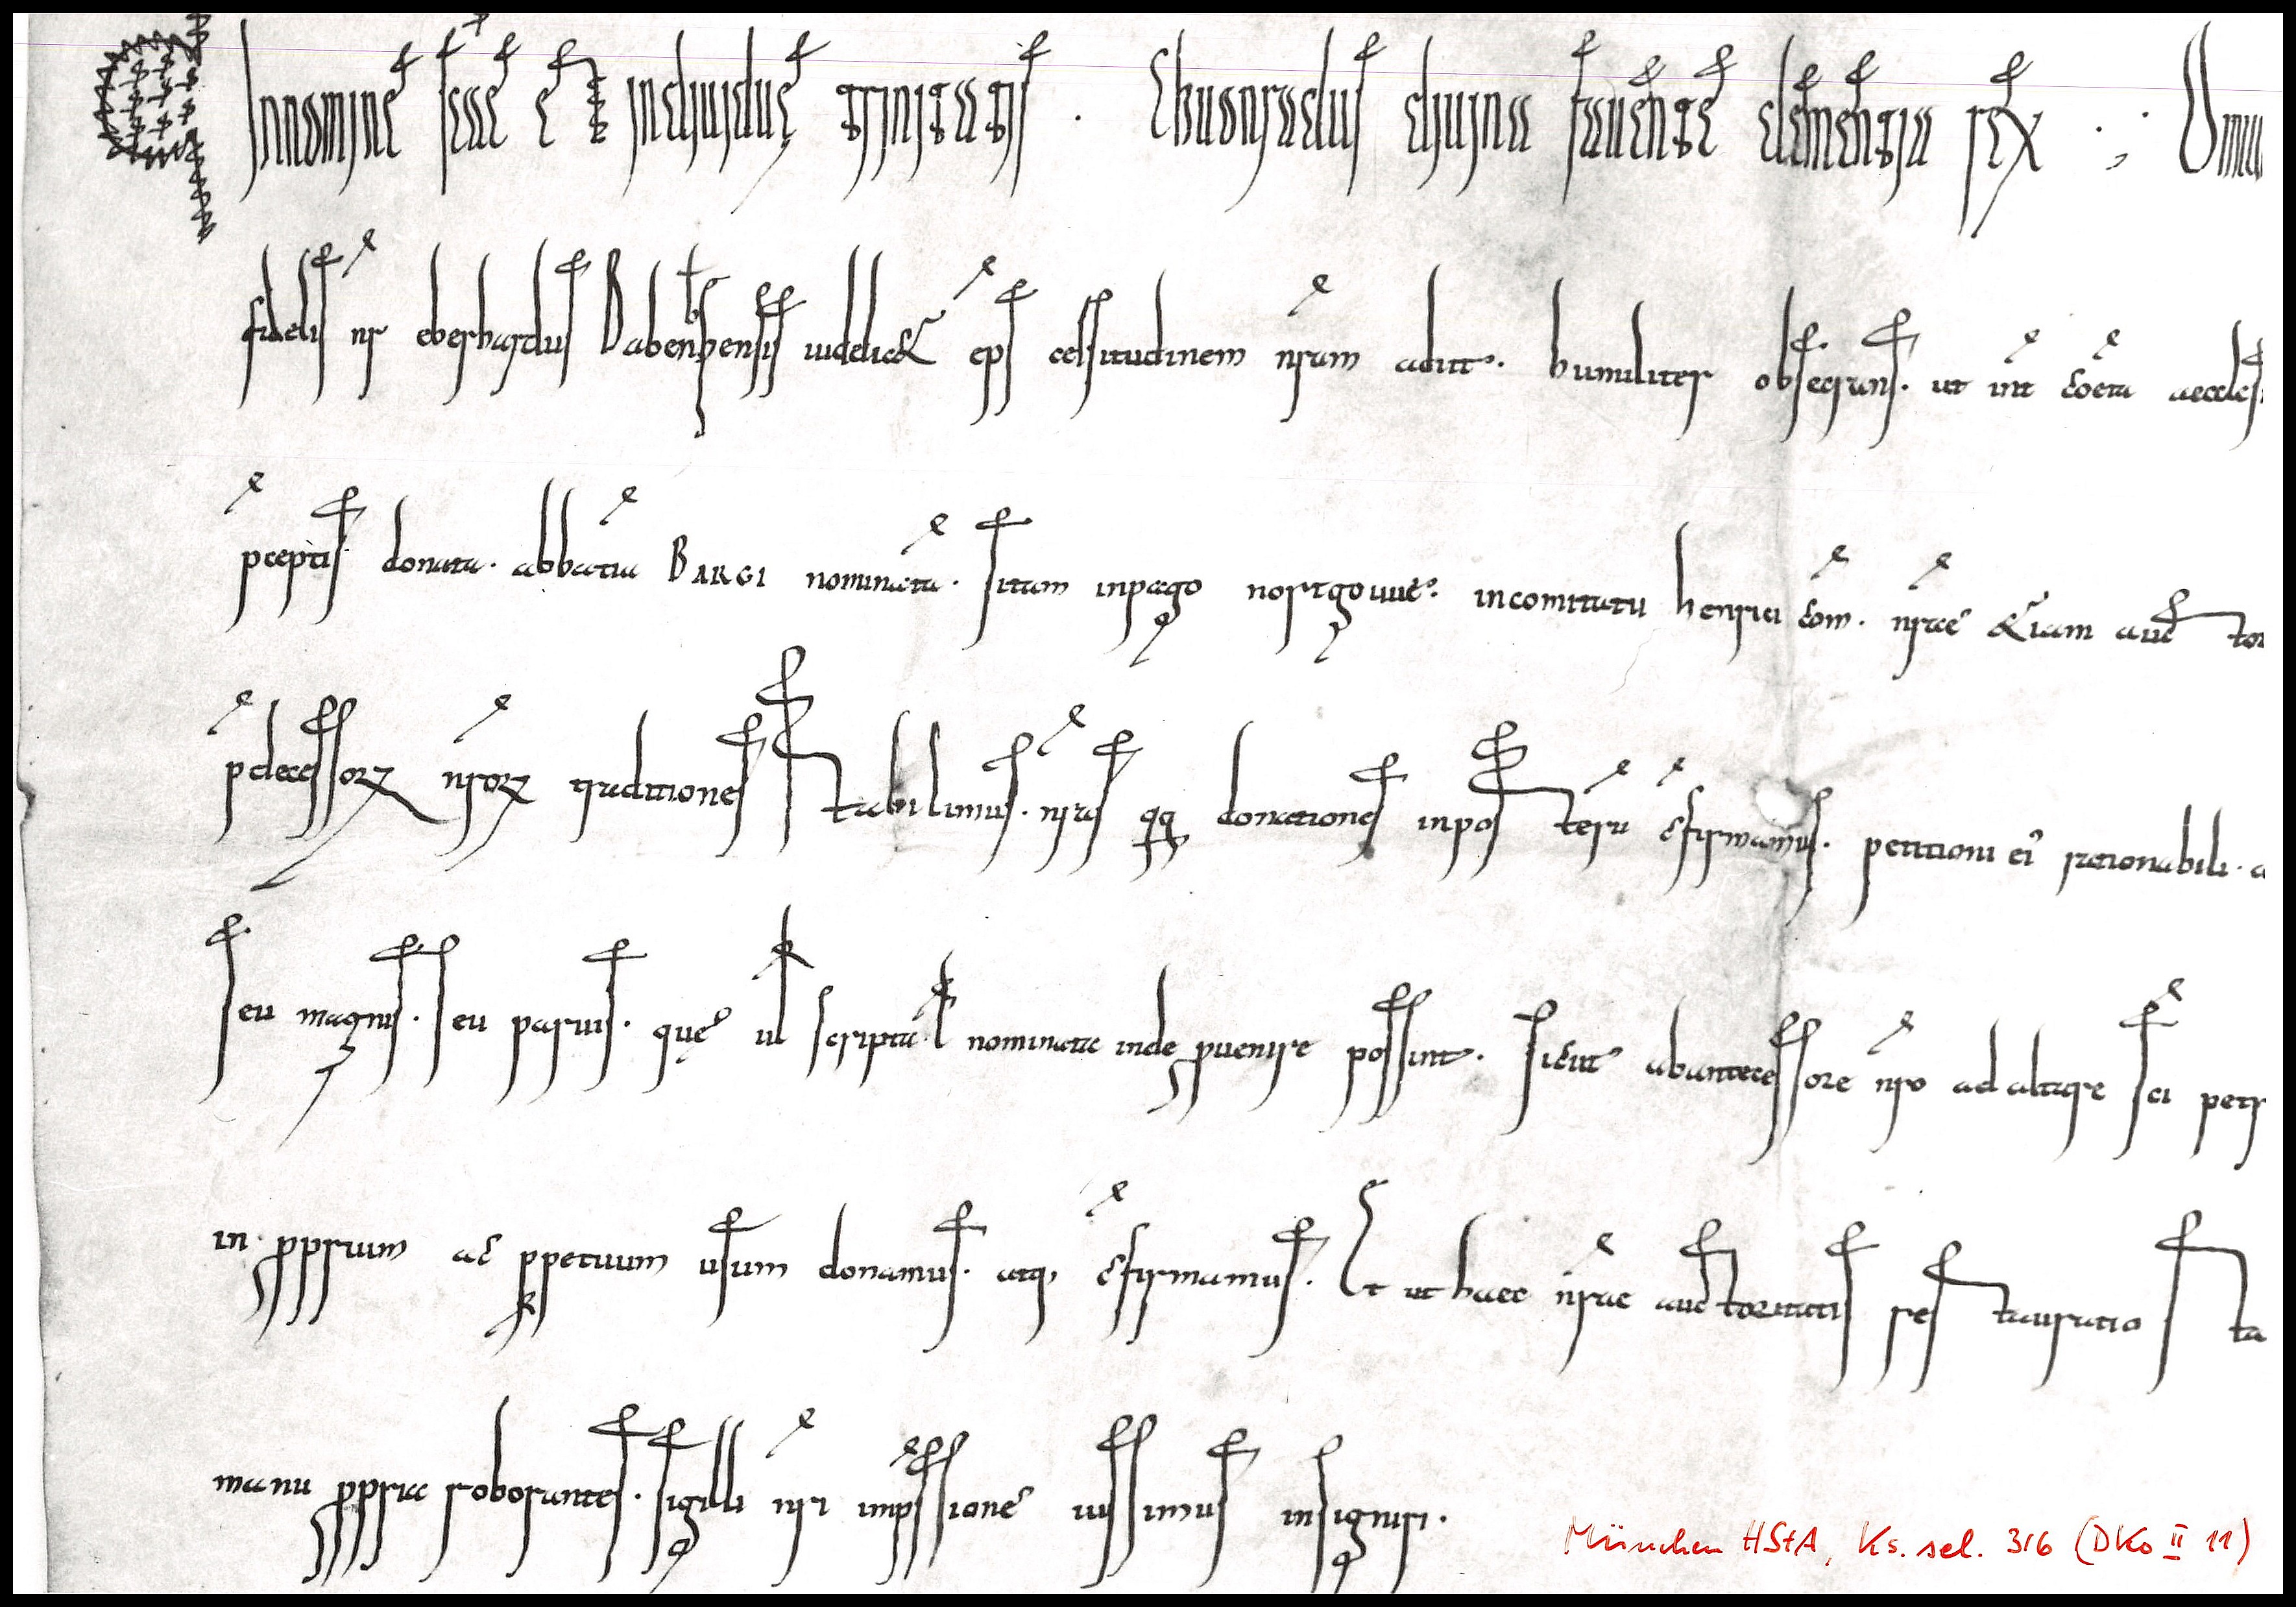 In nomine scae et indiuiduę trinitatis . Chuonradus diuina fauente clementia rex .,· Omni
fidelis nr eberhardus Babenbensis uidelic& eps celsitudinem nram adiit. humiliter obsecrans. ut int coeta aeccles
pceptis donata. abbatia BARGI nominata. sitam inpago nortgouue. incomitatu henrici com. nrae &iam auctor
pdecessorꝝ nrorꝝ traditiones stabilimus. nras qq donationes inposteru cfirmamus. petitioni ei rationabili. a
seu magnis. seu paruis. que ul scripta ul nominata inde puenire possint. sicut abantecessore nro ad altare sci petr
in pprium ac ppetuum usum donamus. atq, cfirmamus. Et ut haec nrae auctoritatis restauratio sta
manu ppria roborantes. sigilli nri impssione iussimus insigniri.
München HStA, Ks. sel. 316 (DKo II 11)